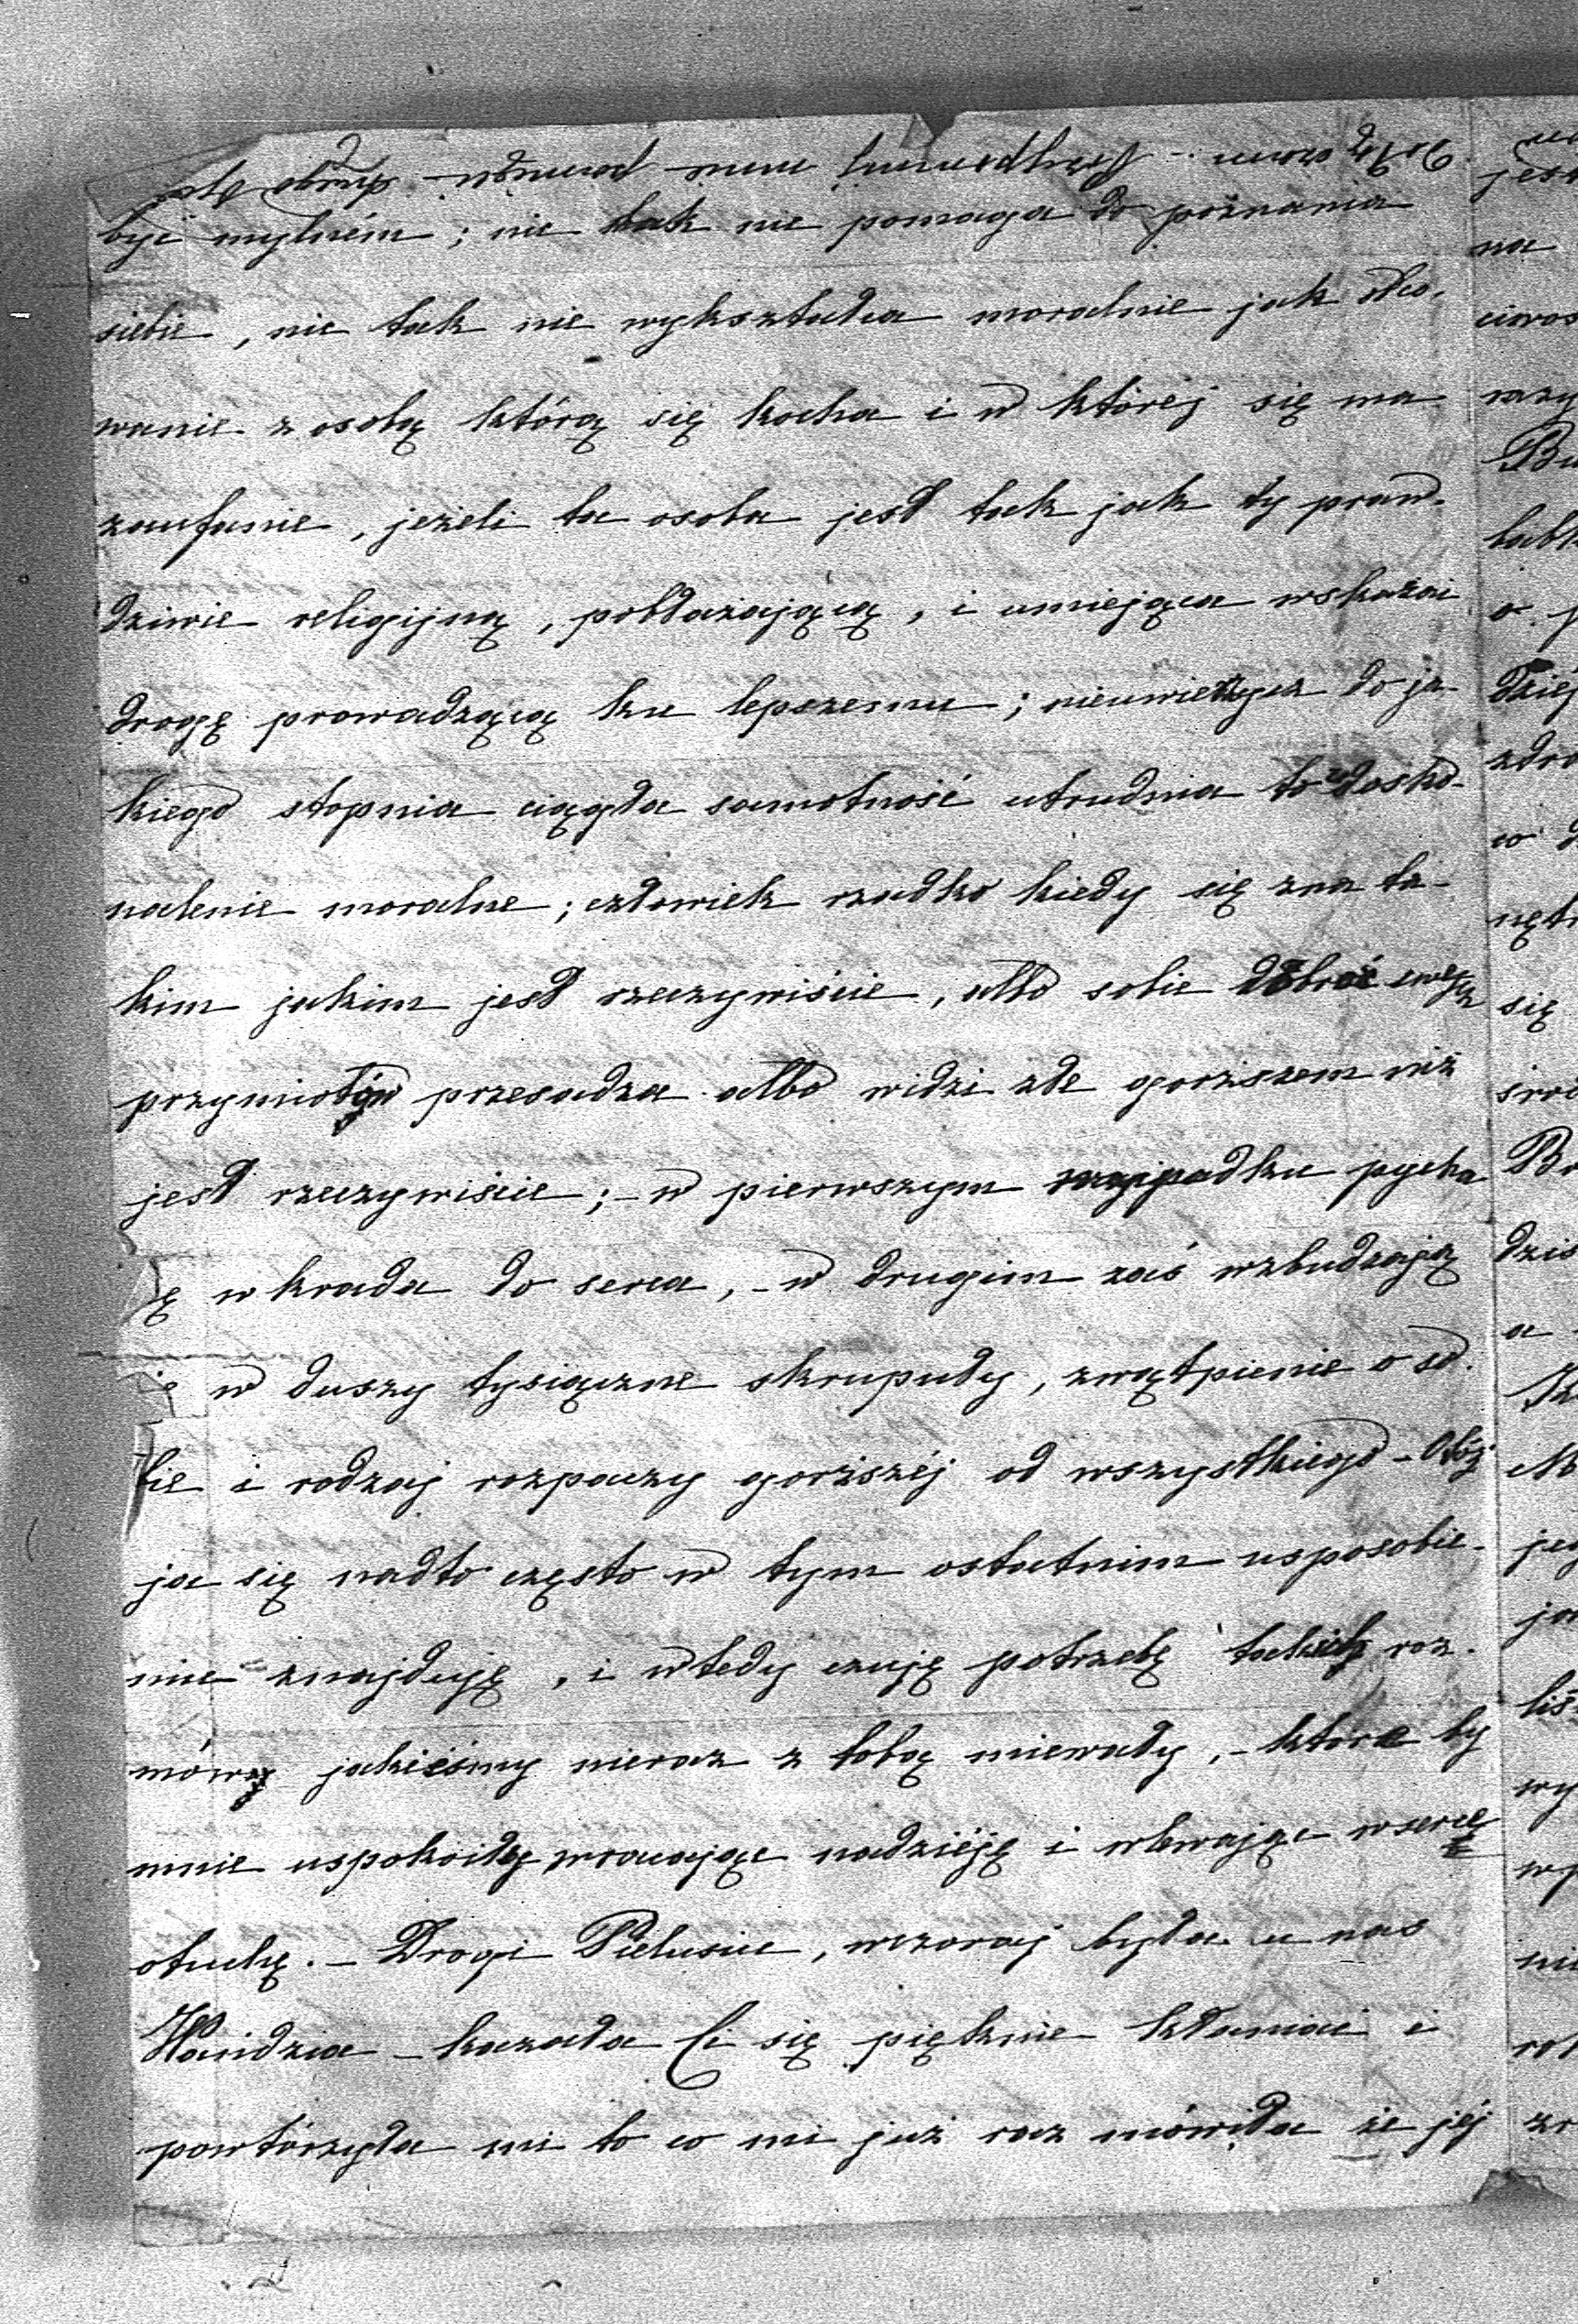 być mylném; nic tak nie pomaga do poznania
siebie, nic tak nie wykształca moralnie jak sto-
wanie z osobą którą się kocha i w której się ma
zaufanie, jeżeli ta osoba jest tak jak ty praw-
dziwie religijną, pobłażającą, i umiejąca wskazać
drogę prowadzącą ku lepszemu; nieuwierzysz do ja-
kiego stopnia ciągła samotność utrudnia to udosko-
nalenie moralne; człowiek rzadko kiedy się zna ta-
kim jakim jest rzeczywiście, albo sobie dobroć swych
przymiotów przesadza albo widzi złe gorszem niż
jest rzeczywiście; – w pierwszym przypadku pycha
ę wkrada do serca, – w drugim zaś wzbudzają
ię w duszy tysiączne skrupuły, zwątpienie o so-
bie i rodzaj rozpaczy gorszéj od wszystkiego – Otóż
ja się nadto często w tym ostatnim usposobie-
nie znajduję, i wtedy czuję potrzebę takich roz-
mów jakieśmy nieraz z tobą miewały, – które by
mnie uspokoiły wracając nadzieję i wlewając w serce
otuchę. – Drogi Pielusiu, wczoraj była u nas
Handzia – kazała Ci się pięknie kłaniać i
powtórzyła mi to co mi już raz mówiła że jéj